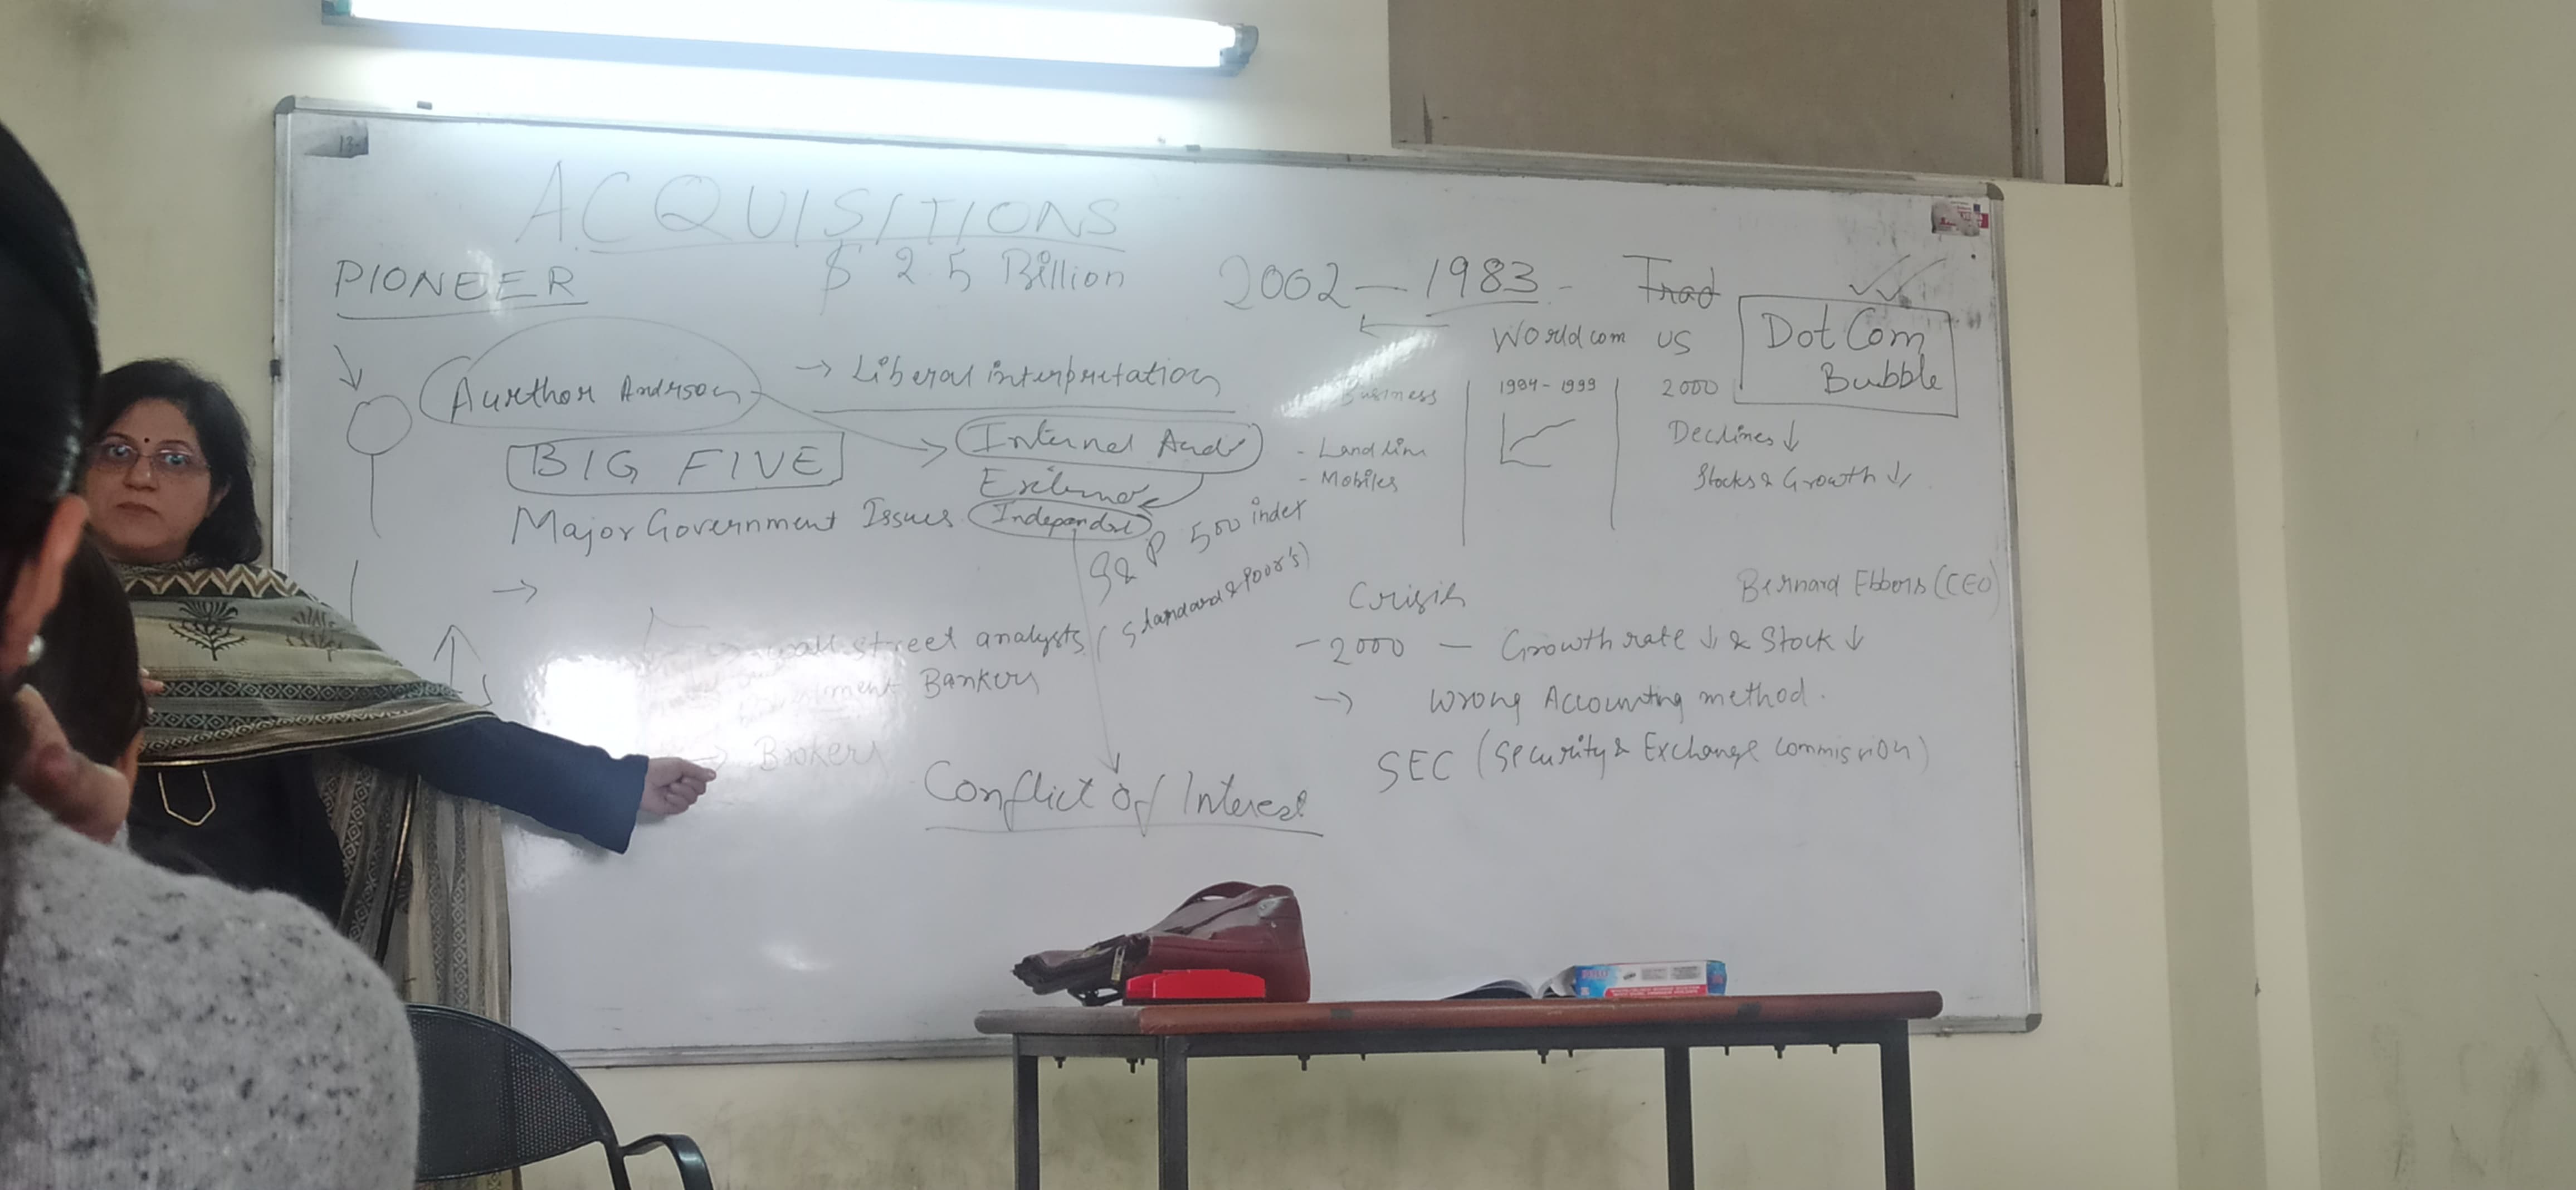 ACQUISITIONS
$ 2.5 Billion
PIONEER
Aurthor Anderson
→ Liberal interpretation
BIG FIVE
→ Internal Aud
External
Independent
Major Government Issues
→
S & P 500 index
(Standard & Poor's)
wall street analysts
Investment Bankers
→ Brokers
Conflict of Interest
2002 — 1983 - Trad
Worldcom US
Dot Com
Bubble
Business
- Landline
- Mobiles
1994 - 1999
2000
Declines ↓
Stocks & Growth ↓
Crisis
Bernard Ebbers (CEO)
- 2000 — Growth rate ↓ & Stock ↓
→ Wrong Accounting method.
SEC (Security & Exchange Commission)